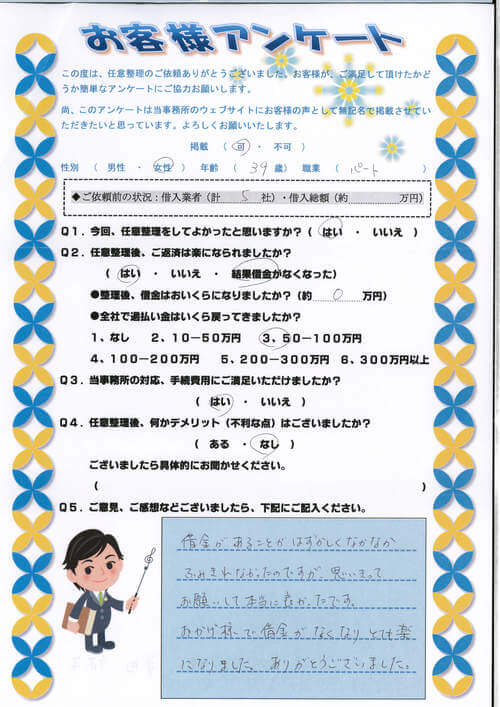 お客様アンケート
この度は、任意整理のご依頼ありがとうございました。お客様が、ご満足して頂けたかど
うか簡単なアンケートにご協力お願いします。
尚、このアンケートは当事務所のウェブサイトにお客様の声として無記名で掲載させてい
ただきたいと思っています。よろしくお願いいたします。
掲載 （ 可 ・ 不可 ）
性別 （ 男性 ・ 女性 ） 年齢 （ 39 歳） 職業 （ パート ）
◆ご依頼前の状況：借入業者（計 5 社）・借入総額（約 万円）
Q1．今回、任意整理をしてよかったと思いますか？（ はい ・ いいえ ）
Q2．任意整理後、ご返済は楽になられましたか？
（ はい ・ いいえ ・ 結果借金がなくなった）
●整理後、借金はおいくらになりましたか？（約 0 万円）
●全社で過払い金はいくら戻ってきましたか？
1、なし 2、10－50万円 3、50－100万円
4、100－200万円 5、200－300万円 6、300万円以上
Q3．当事務所の対応、手続費用にご満足いただけましたか？
（ はい ・ いいえ ）
Q4．任意整理後、何かデメリット（不利な点）はございましたか？
（ ある ・ なし ）
ございましたら具体的にお聞かせください。
（ ）
Q5．ご意見、ご感想などございましたら、下記にご記入ください。
借金があることがはずかしくなかなか
ふみきれなかったのですが、思いきって
お願いして本当に良かったです。
おかげ様で借金がなくなり、とても楽
になりました。ありがとうございました。